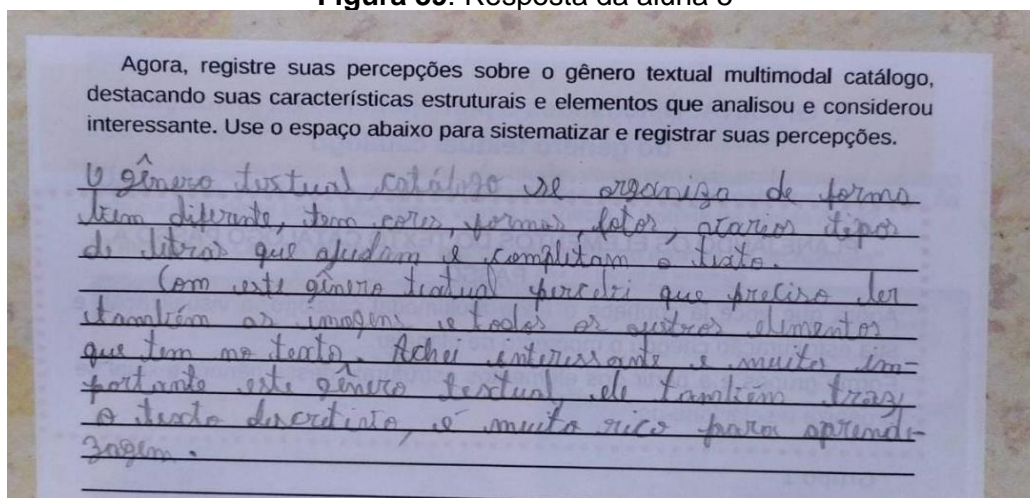 Figura 39: Resposta da aluna 3
Agora, registre suas percepções sobre o gênero textual multimodal catálogo,
destacando suas características estruturais e elementos que analisou e considerou
interessante. Use o espaço abaixo para sistematizar e registrar suas percepções.
O gênero textual catálogo se organiza de forma
bem diferente, tem cores, formas, fotos, vários tipos
de letras que ajudam e completam o texto.
Com este gênero textual percebi que preciso ler
também as imagens e todos os outros elementos
que tem no texto. Achei interessante e muito im-
portante este gênero textual, ele também traz
o texto descritivo, é muito rico para aprendi-
zagem.